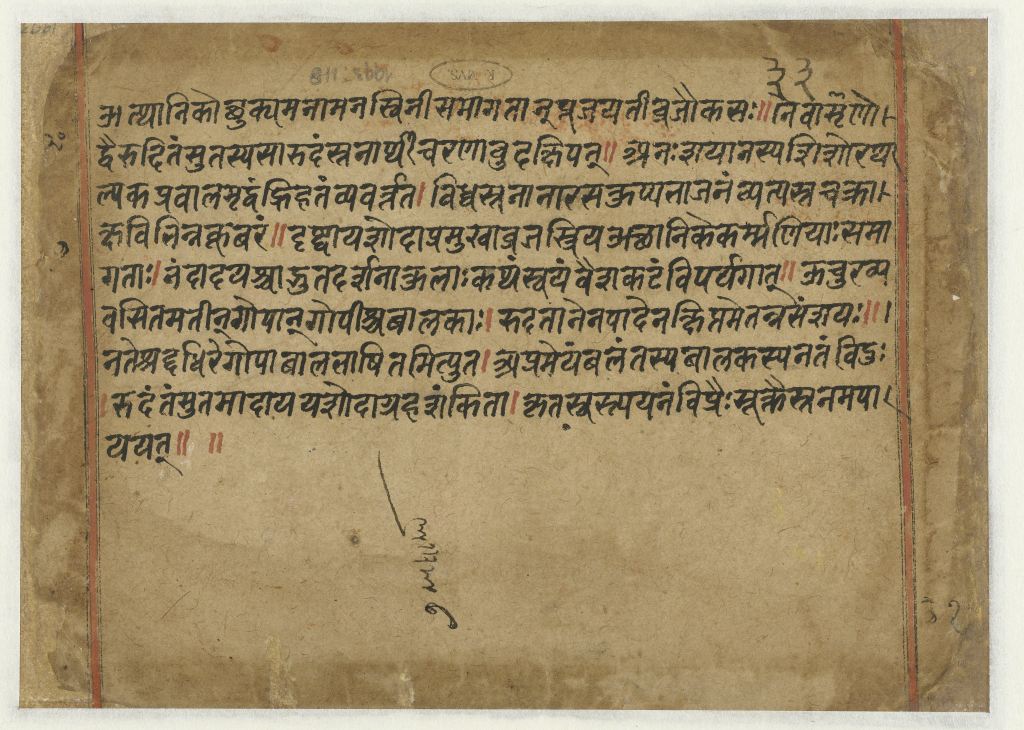 ३३
अत्थानिकौत्सुक्यमनामनस्विनीसमागतान्पूजयतीव्रजौकसः॥ नैवाशृणो
द्वैरुदितंसुतस्यसारुदंस्तनार्थीचरणावुदक्षिपत्॥ अधःशयानस्यशिशोरथा
ल्पकप्रवालमृद्वंह्रिहतंव्यवर्त्तत। विध्वस्तनानारसकुप्यभाजनंव्यत्यस्तचक्रा
क्षविभिन्नकूबरं॥ दृष्ट्वायशोदाप्रमुखाव्रजस्त्रियअत्थानिकेकर्म्मणियाःसमा
गताः। नंदादयश्चाद्भुतदर्शनाकुलाःकथंस्वयंवैशकटंविपर्यगात्॥ ऊचुरव्य
वसितमतीन्गोपान्गोपीश्चबालकाः। रुदतानेनपादेनक्षिप्तमेतन्नसंशयः॥
नतेश्रद्दधिरेगोपाबालभाषितमित्युत। अप्रमेयंबलंतस्यबालकस्यनतंविदुः
। रुदंतंसुतमादाययशोदाग्रहशंकिता। कृतस्वस्त्ययनंविप्रैःसूक्तैस्तनमपा
ययत्॥ ॥